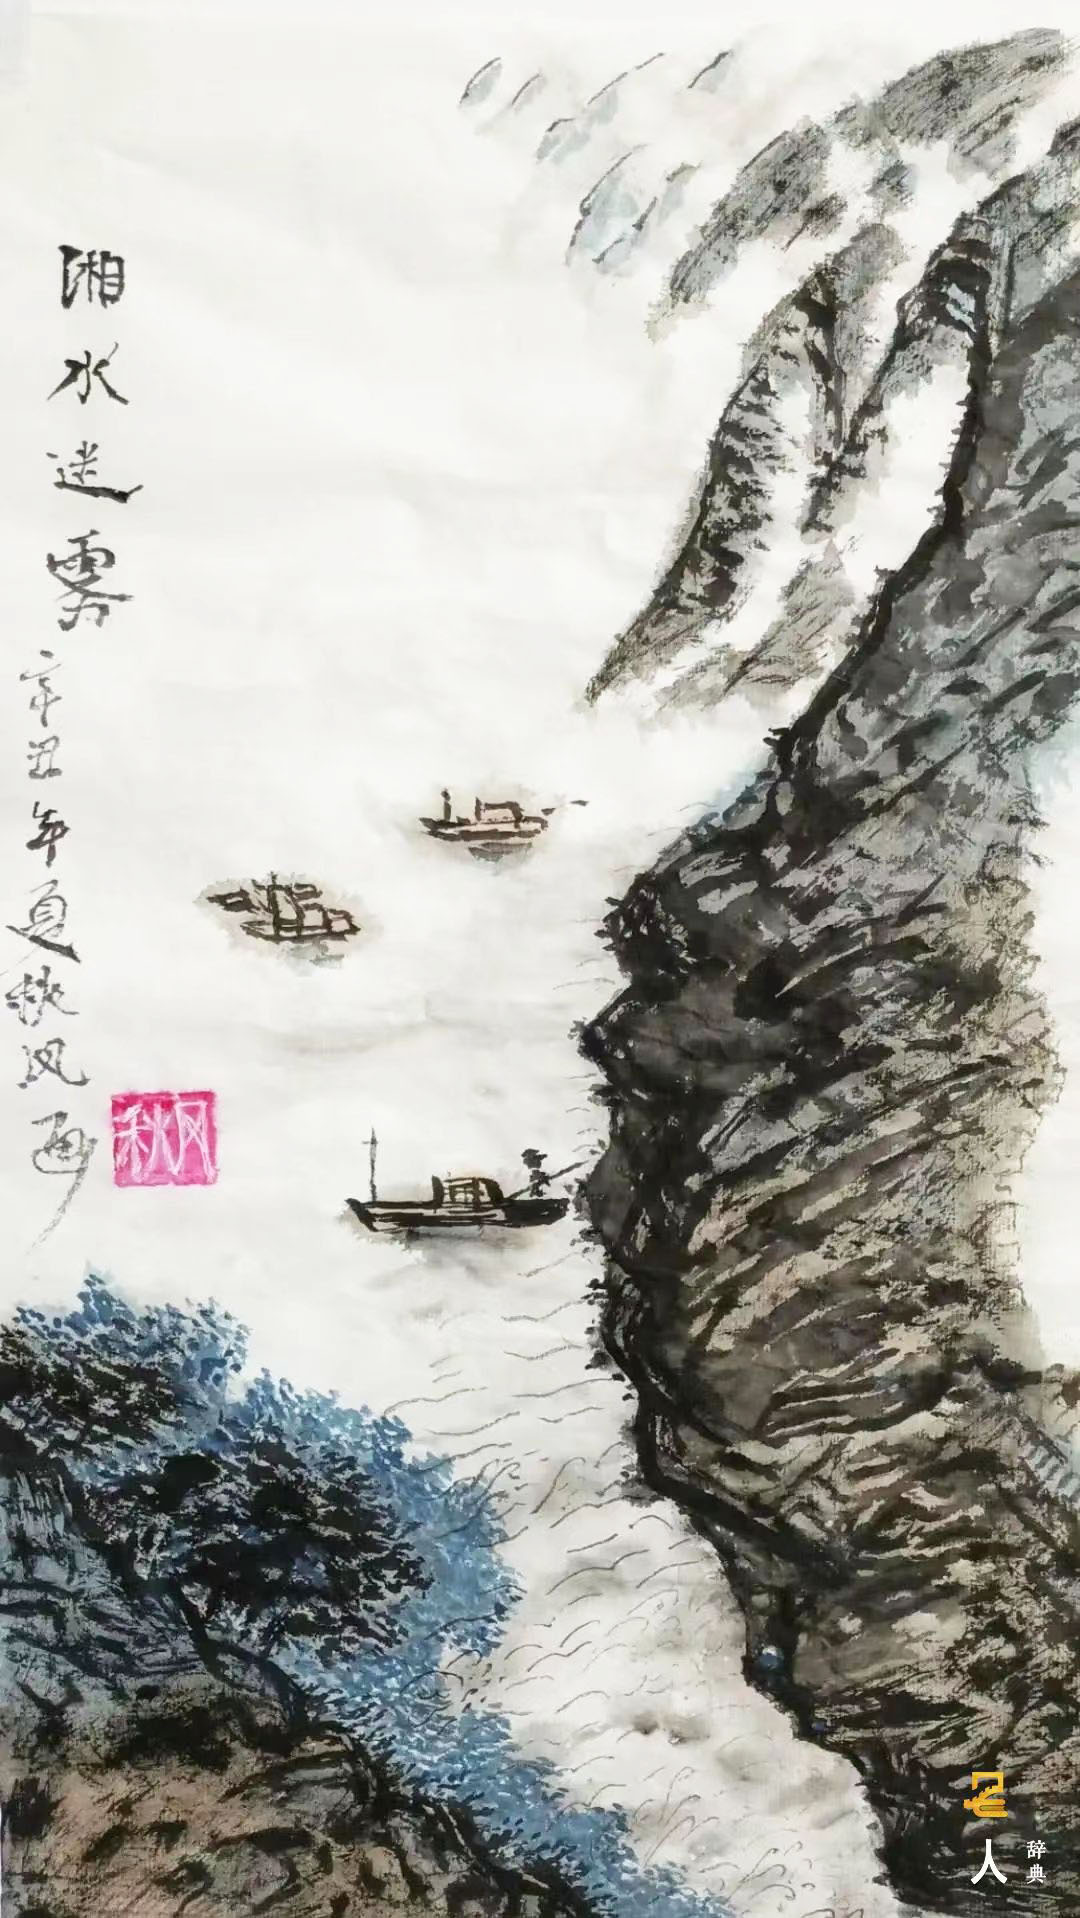 湘水迷雾
辛丑年夏秋风画
秋风
名人辞典